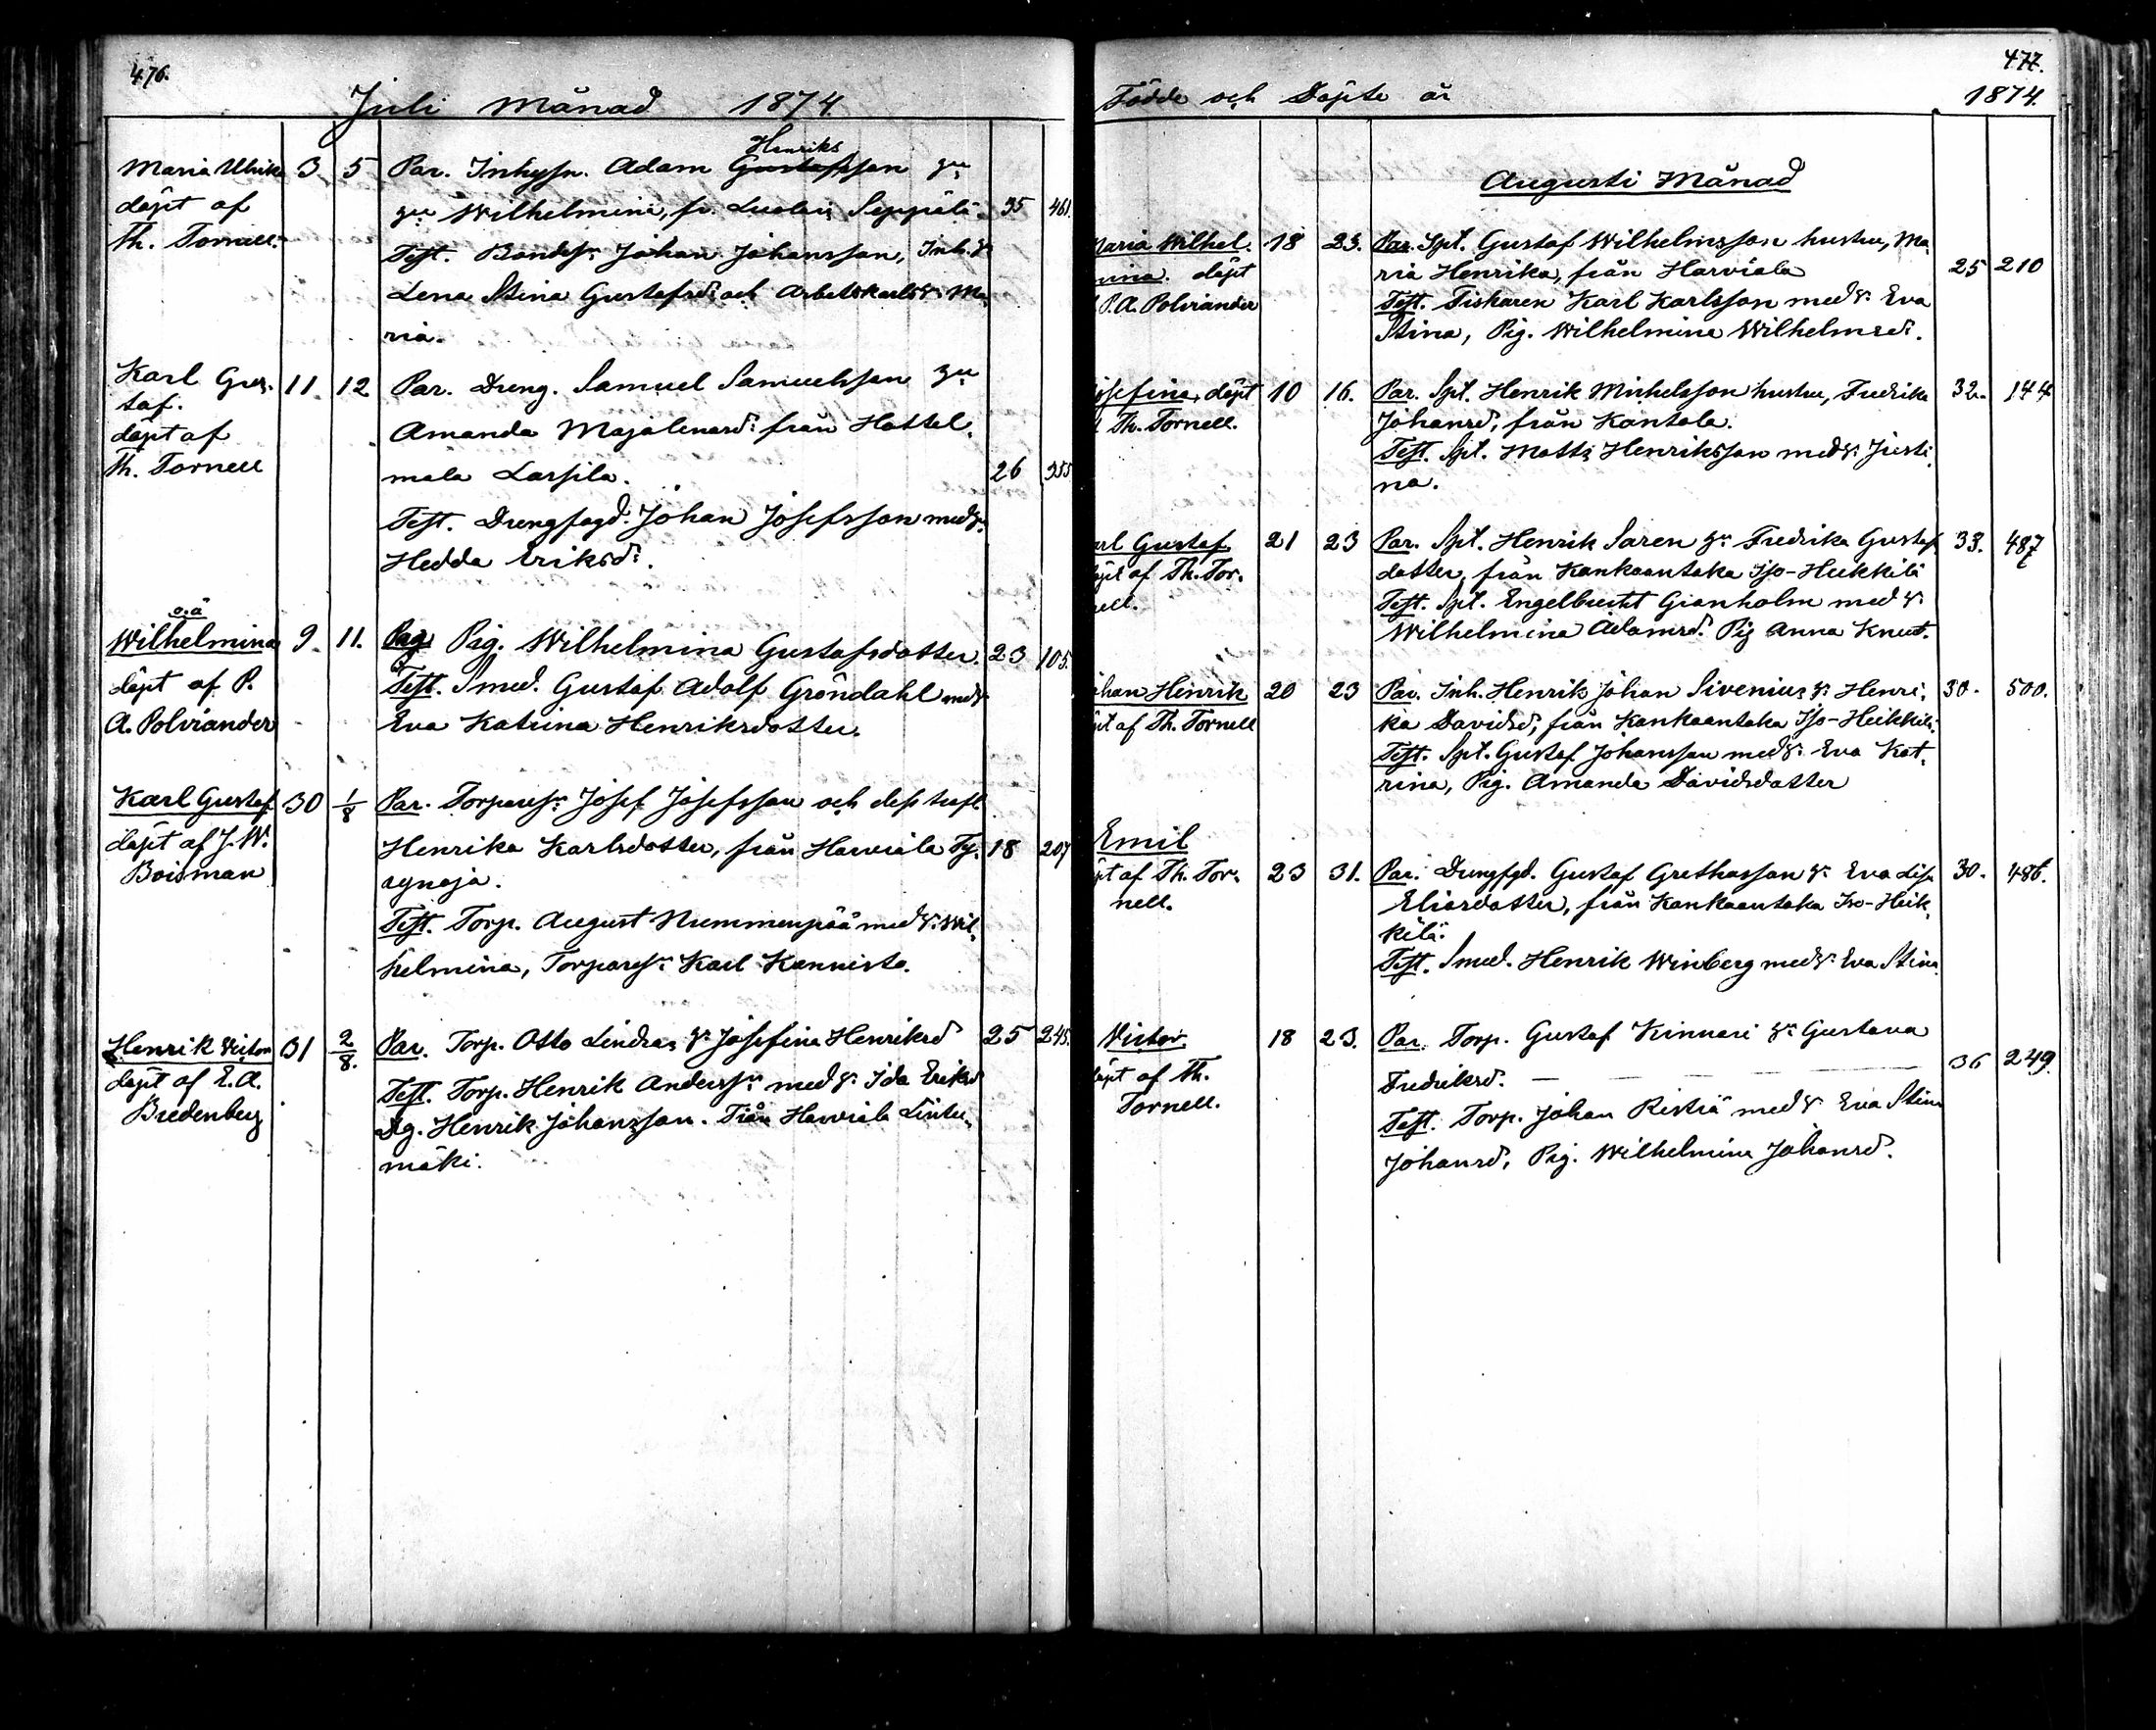 476.
Juli Månad 1874.
Maria Ulrik
döpt af
Th. Tornell.
3 5
Par. Inhyss. Adam Gustafsson gu
Henriks
gu Wilhelmina, fr. Seppälä. 35 461.
Test. Bondes. Johan Johansson, Inh. h.
Lena Stina Gustafsd. och Arbetskarls h. Ma
ria.
Karl Gus-
taf.
döpt af
Th. Tornell
11. 12
Par. Dreng. Samuel Samuelsson gu
Amanda Majalenasd. från Hattel-
mala Lassila. 26 355
Test. Drengfogd. Johan Josefsson med h.
Hedda Eriksd.
o.ä
Wilhelmina
döpt af P.
A. Polviander
9. 11.
Pig. Wilhelmina Gustafsdotter. 23 105.
Test. Smed. Gustaf Adolf Gröndahl med h
Eva Katrina Henriksdotter.
Karl Gustaf
döpt af J. W.
Boisman
30 1/8
Par. Torpares. Josef Josefsson och dess trofl
Henrika Karlsdotter, från Harviala Ty- 18 207
rynoja.
Test. Torp. August Nummenpää med h. Wil-
helmina, Torpares. Karl Kannisto.
Henrik Victor
döpt af E. A.
Bredenberg
31 2/8.
Par. Torp. Otto Lindra, h. Josefina Henriksd 25 245.
Test. Torp. Henrik Anderss. med h. Ida Eriksd
Dg. Henrik Johansson. Från Harviala Lintu-
mäki.
477.
Födde och Döpte år 1874.
Augusti Månad
Maria Wilhel-
mina. döpt
P. A. Polviander
18 23.
Par. Spt. Gustaf Wilhelmsson hustru, Ma
ria Henrika, från Harviala 25 210
Test. Fiskaren Karl Karlsson med h. Eva
Stina, Pig. Wilhelmina Wilhelmsd.
Josefina, döpt
Th. Tornell.
10 16.
Par. Spt. Henrik Michelsson hustru, Fredrika 32. 144
Johansd, från Kantola.
Test. Spt. Matts Henriksson med h. Justi-
na.
Karl Gustaf
döpt af Th. Tor-
nell.
21 23
Par. Spt. Henrik Saren h. Fredrika Gustaf 33. 487
dotter, från Kankaantaka Iso-Heikkilä
Test. Spt. Engelbrecht Granholm med h.
Wilhelmina Adamsd. Pig Anna Knut.
Johan Henrik
döpt af Th. Tornell
20 23
Par. Inh. Henrik Johan Sivenius h. Henri- 30. 500.
ka Davidsd, från Kankaantaka Iso-Heikkilä.
Test. Spt. Gustaf Johansson med h. Eva Kat-
rina, Pig. Amanda Davidsdotter
Emil
döpt af Th. Tor-
nell.
23 31.
Par. Drengfgd. Gustaf Grethasson h. Eva Lisa 30. 486.
Eliasdotter, från Kankaantaka Iso-Heik-
kilä.
Test. Smed. Henrik Winberg med h. Eva Stina
Victor.
döpt af Th.
Tornell.
18 23.
Par. Torp. Gustaf Kinnari h. Gustava
Fredriksd. 36 249.
Test. Torp. Johan Ristiä med h Eva Stina
Johansd, Pig. Wilhelmina Johansd.